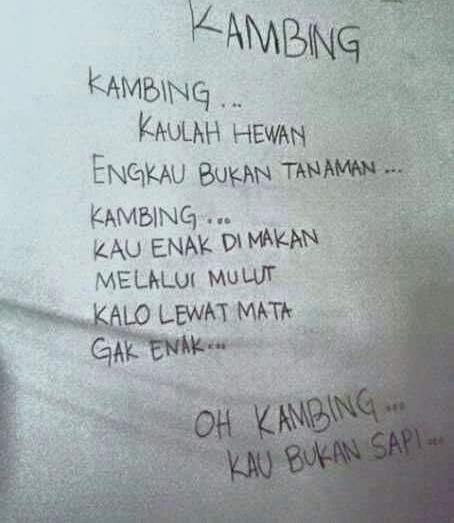 KAMBING
KAMBING...
KAULAH HEWAN
ENGKAU BUKAN TANAMAN...
KAMBING...
KAU ENAK DI MAKAN
MELALUI MULUT
KALO LEWAT MATA
GAK ENAK...
OH KAMBING...
KAU BUKAN SAPI...